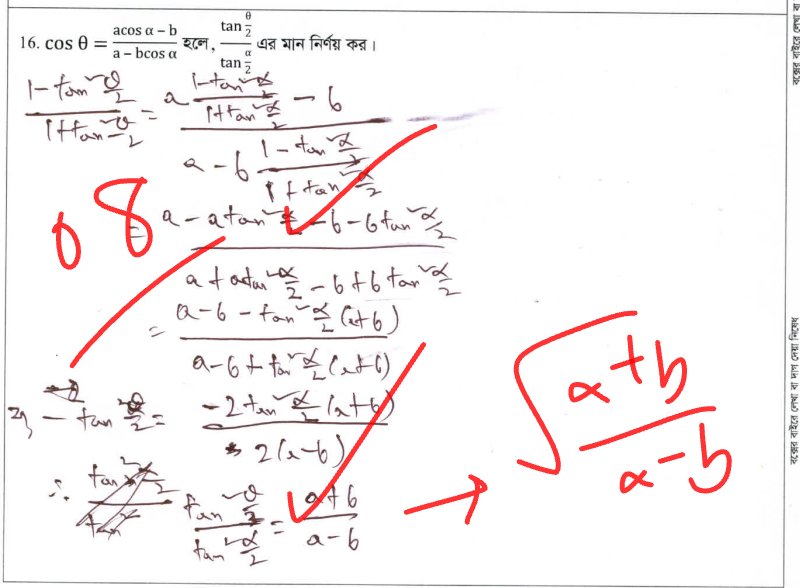 16. cos θ = (acos α − b)/(a − bcos α) হলে, (tan θ/2)/(tan α/2) এর মান নির্ণয় কর।
(1 − tan² θ/2)/(1 + tan² θ/2) = (a (1 − tan² α/2)/(1 + tan² α/2) − b)/(a − b (1 − tan² α/2)/(1 + tan² α/2))
08
= (a − a tan² α/2 − b − b tan² α/2)/(a + a tan² α/2 − b + b tan² α/2)
= (a − b − tan² α/2 (a+b))/(a − b + tan² α/2 (a+b))
− tan² θ/2 = (−2 tan² α/2 (a+b))/(2(a−b))
∴ (tan² θ/2)/(tan² α/2) = (a+b)/(a−b) → √((a+b)/(a−b))
বক্সের বাইরে লেখা বা দাগ দেয়া নিষেধ
বক্সের বাইরে লেখা বা